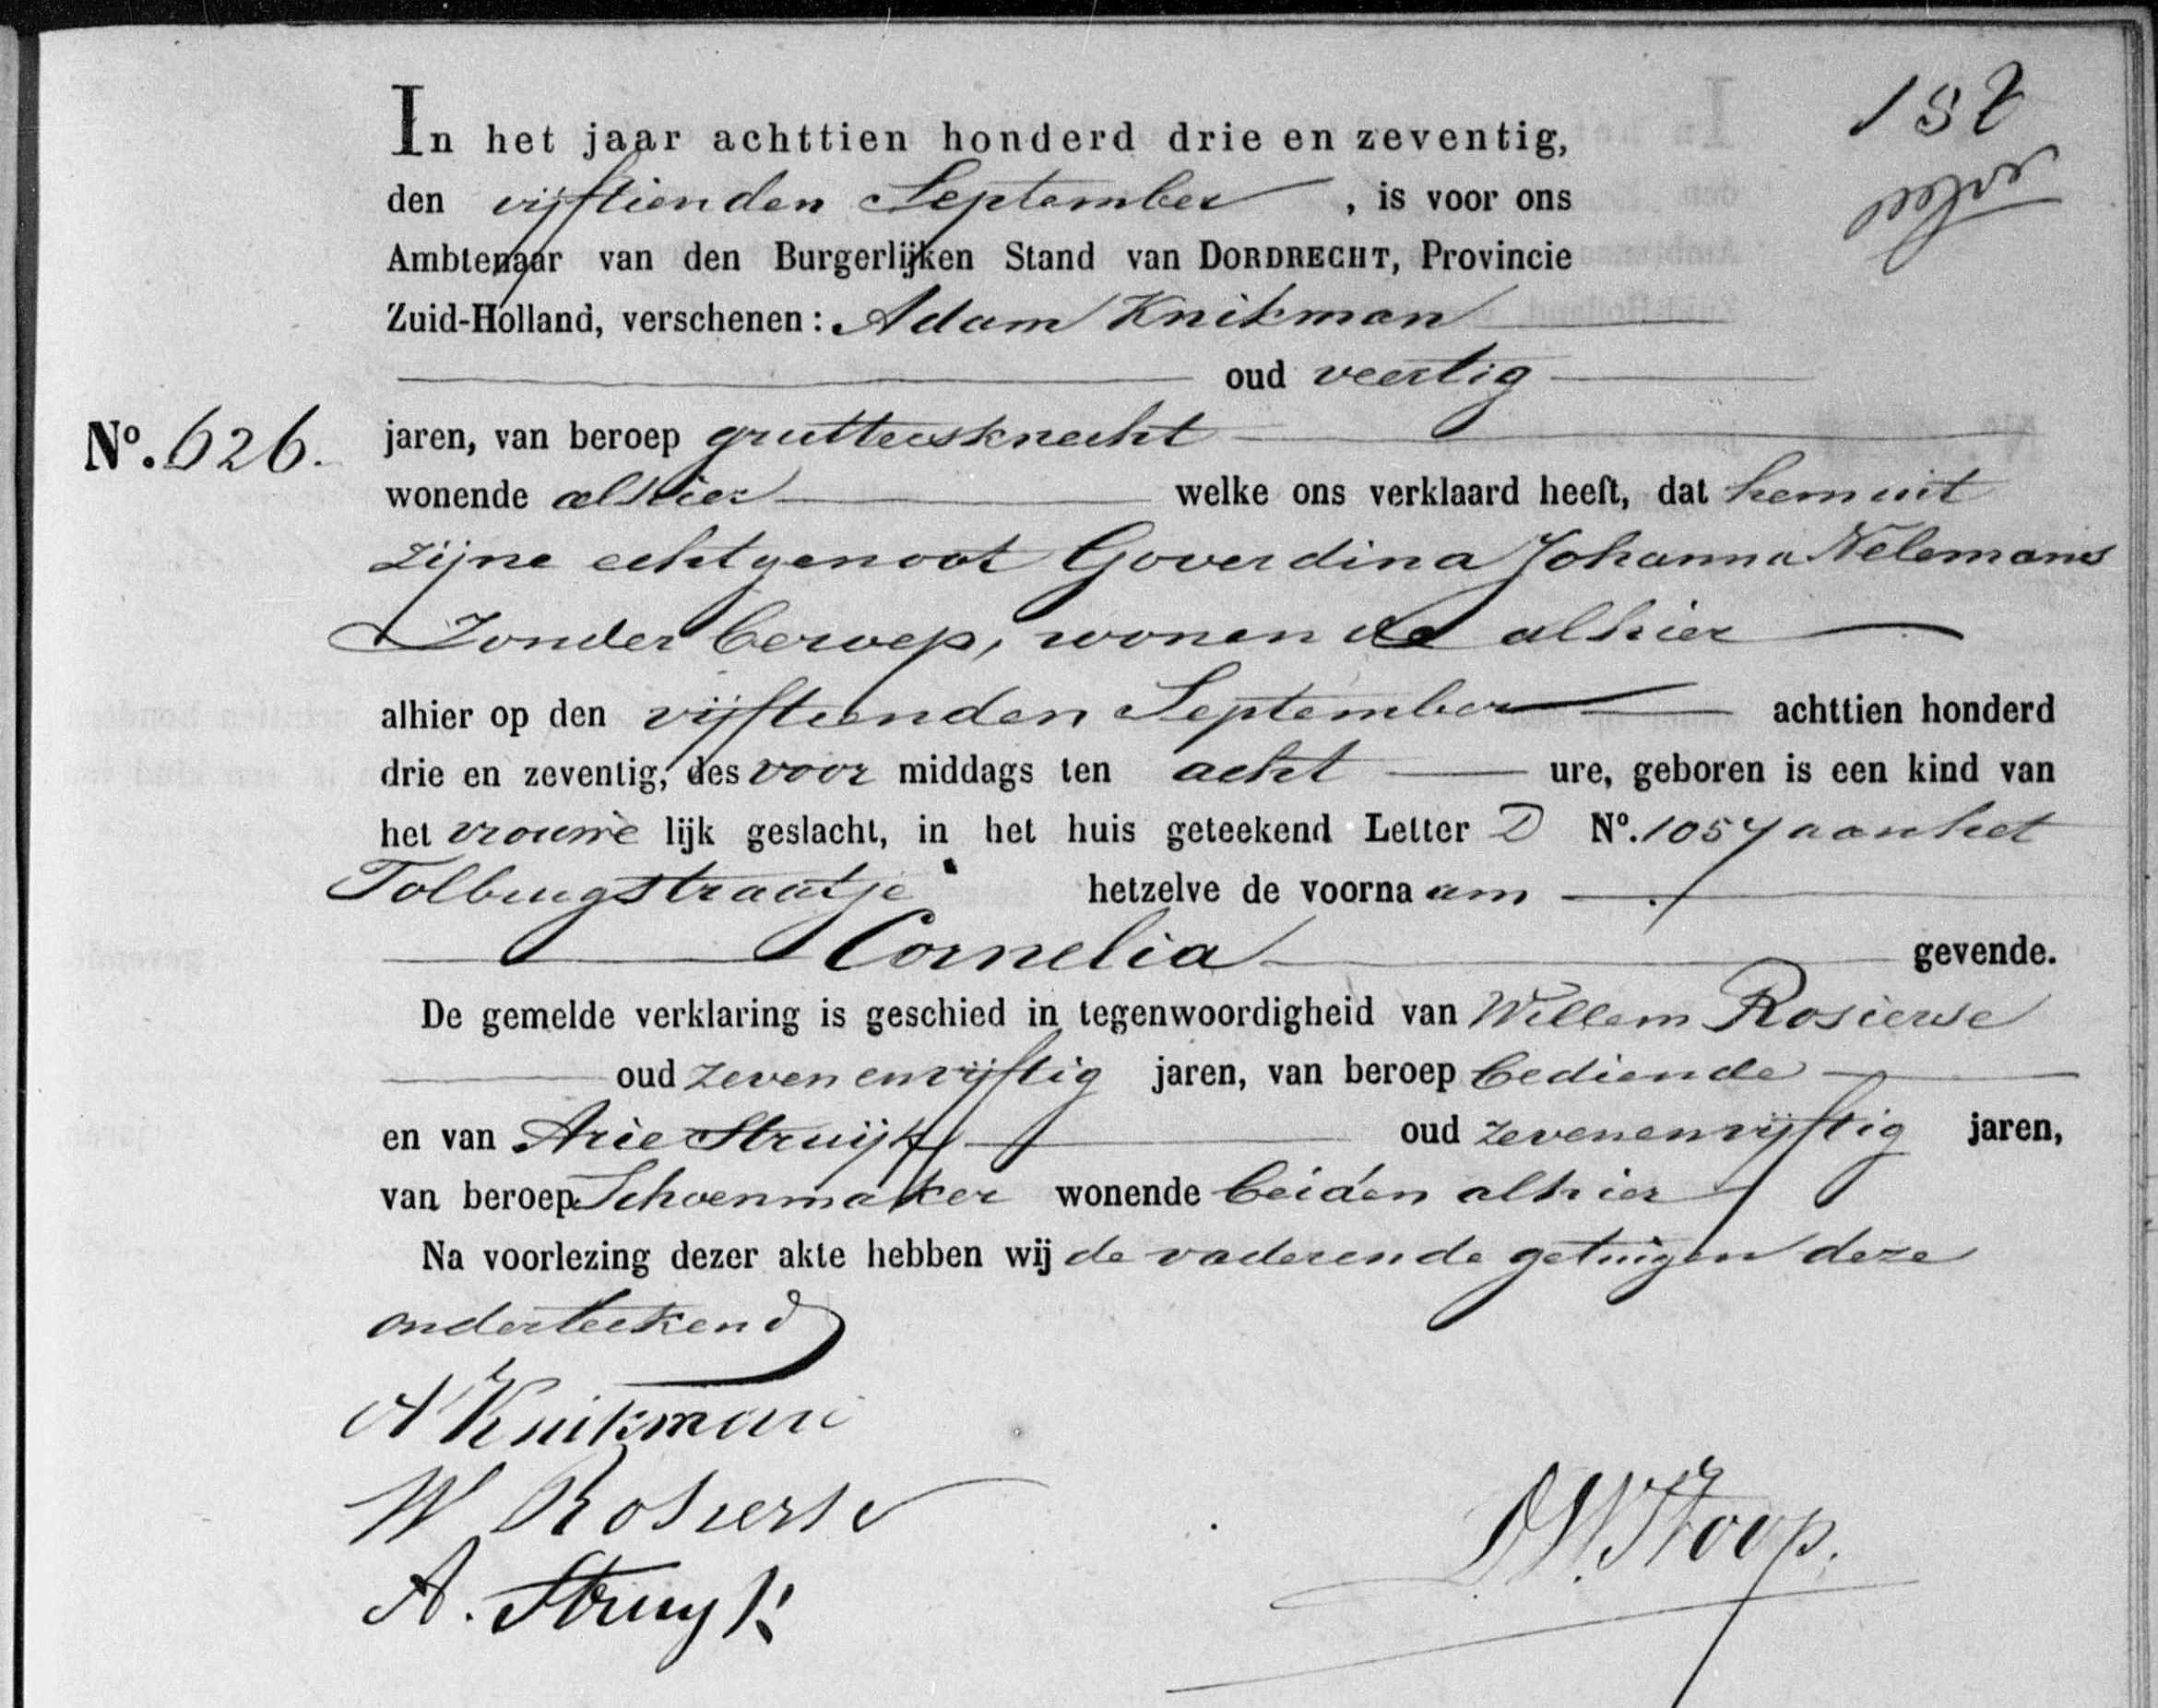 In het jaar achttien honderd drie en zeventig,
den vijftienden September, is voor ons
Ambtenaar van den Burgerlijken Stand van DORDRECHT, Provincie
Zuid-Holland, verschenen: Adam Knikman
oud veertig
No. 626. jaren, van beroep gruttersknecht
wonende alhier welke ons verklaard heeft, dat hem uit
zijne echtgenoot Goverdina Johanna Nelemans
Zonder beroep, wonende alhier
alhier op den vijftienden September achttien honderd
drie en zeventig, des voor middags ten acht ure, geboren is een kind van
het vrouwe lijk geslacht, in het huis geteekend Letter D No. 1057 aan het
Tolbrugstraatje hetzelve de voorna am
Cornelia gevende.
De gemelde verklaring is geschied in tegenwoordigheid van Willem Rosierse
oud zevenenvijftig jaren, van beroep bediende
en van Arie Struijk oud zevenenvijftig jaren,
van beroep Schoenmaker wonende beiden alhier
Na voorlezing dezer akte hebben wij de vader en de getuigen deze
onderteekend
A Knikman
W Rosierse
A. Struyk
Stoop.